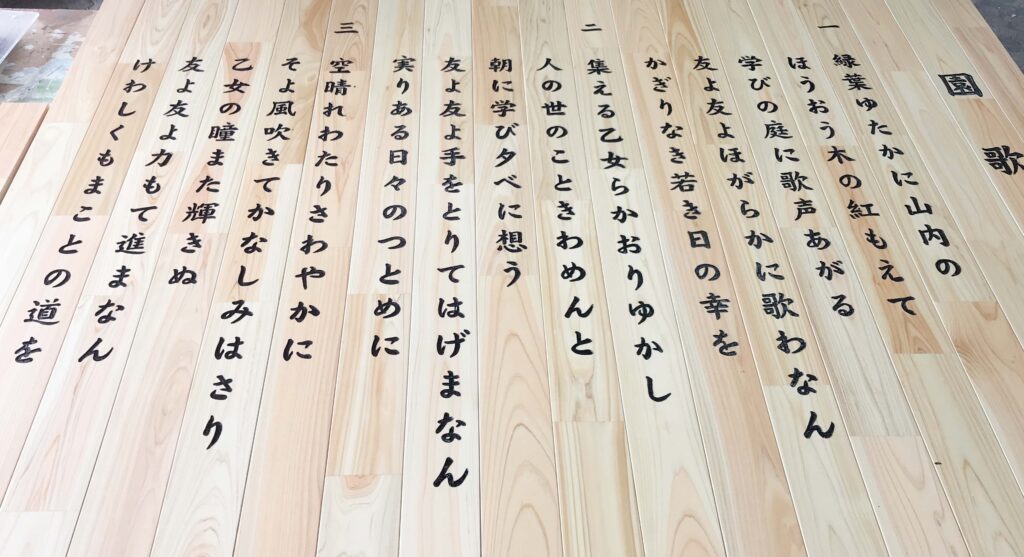 園歌
一
緑葉ゆたかに山内の
ほうおう木の紅もえて
学びの庭に歌声あがる
友よ友よほがらかに歌わなん
かぎりなき若き日の幸を
二
集える乙女らかおりゆかし
人の世のこときわめんと
朝に学び夕べに想う
友よ友よ手をとりてはげまなん
実りある日々のつとめに
三
空晴れわたりさわやかに
そよ風吹きてかなしみはさり
乙女の瞳また輝きぬ
友よ友よ力もて進まなん
けわしくもまことの道を